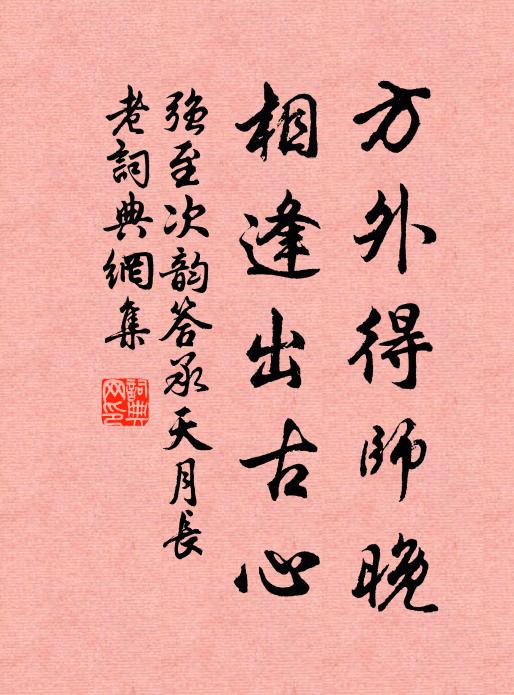 方外得師晚
相逢出古心
強至次韵答承天月長
老詞典網集
詞典
网印